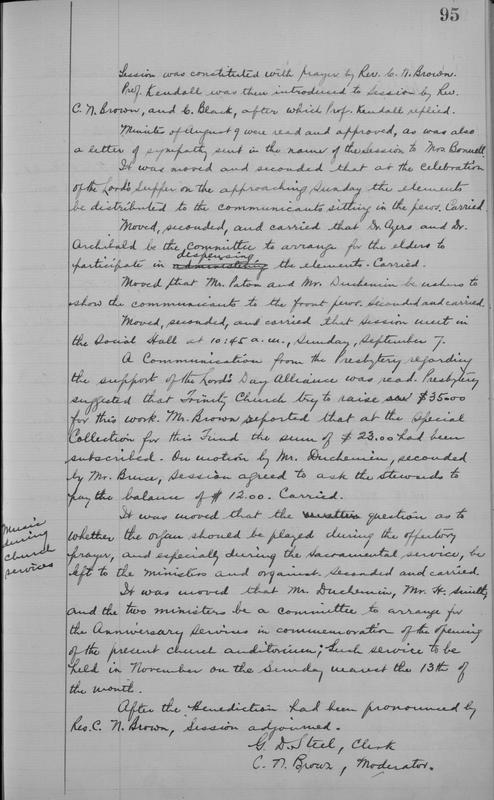 95
Session was constituted with prayer by Rev. C. N. Brown.
Prof. Kendall was then introduced to Session by Rev.
C. N. Brown, and C. Black, after which Prof. Kendall replied.
Minutes of August 9 were read and approved, as was also
a letter of sympathy sent in the name of the Session to Mrs. Bonnell.
It was moved and seconded that at the celebration
of the Lord's Supper on the approaching Sunday the elements
be distributed to the communicants sitting in the pews. Carried.
Moved, seconded, and carried that Dr. Ayers and Dr.
Archibald be the committee to arrange for the elders to
dispensing
participate in administering the elements. Carried.
Moved that Mr. Paton and Mr. Duchemin be ushers to
show the communicants to the front pews. Seconded and carried.
Moved, seconded, and carried that Session meet in
the Social Hall at 10:45 a.m., Sunday, September 7.
A Communication from the Presbytery regarding
the support of the Lord's Day Alliance was read. Presbytery
suggested that Trinity Church try to raise $35.00
for this work. Mr. Brown reported that at the special
Collection for this Fund the sum of $23.00 had been
subscribed. On motion by Mr. Duchemin, seconded
by Mr. Bruce, Session agreed to ask the stewards to
pay the balance of $12.00. Carried.
It was moved that the question as to
Music
during
church
services
whether the organ should be played during the offertory
prayer, and especially during the sacramental service, be
left to the ministers and organist. Seconded and carried.
It was moved that Mr. Duchemin, Mr. H. Smith,
and the two ministers be a committee to arrange for
the Anniversary Services in commemoration of the opening
of the present church auditorium; such service to be
held in November on the Sunday nearest the 13th of
the month.
After the Benediction had been pronounced by
Rev. C. N. Brown, Session adjourned.
G. D. Steel, Clerk
C. N. Brown, Moderator.